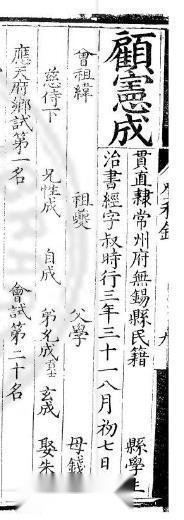 顧憲成
貫直隸常州府無錫縣民籍 縣學生
治書經字叔時行三年三十一八月初七日
曾祖緯 祖夔 父學 母錢
慈侍下 兄性成 自成 弟允成貢士 玄成 娶朱
應天府鄉試第一名 會試第二十名